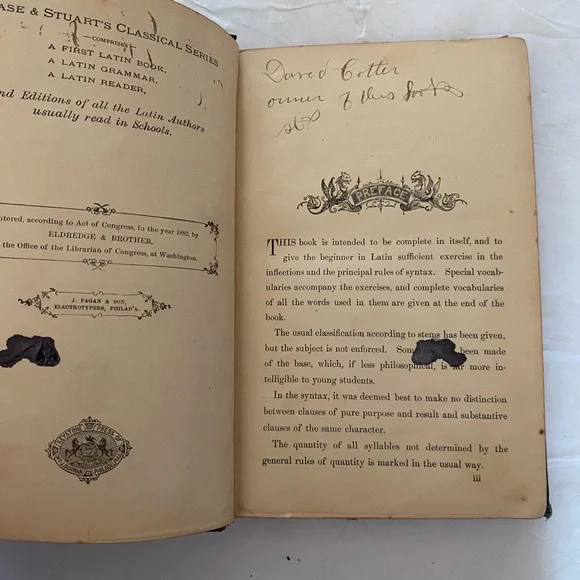 ASE & STUART'S CLASSICAL SERIES
—COMPRISES—
A FIRST LATIN BOOK,
A LATIN GRAMMAR,
A LATIN READER,
nd Editions of all the Latin Authors
usually read in Schools.
ntered, according to Act of Congress, in the year 1882, by
ELDREDGE & BROTHER,
the Office of the Librarian of Congress, at Washington.
J. FAGAN & SON,
ELECTROTYPERS, PHILAD'A.
KEYSTONE PRESS OF
PHILADELPHIA
David Cotter
owner of this book
PREFACE
THIS book is intended to be complete in itself, and to
give the beginner in Latin sufficient exercise in the
inflections and the principal rules of syntax. Special vocab-
ularies accompany the exercises, and complete vocabularies
of all the words used in them are given at the end of the
book.
The usual classification according to stems has been given,
but the subject is not enforced. Some been made
of the base, which, if less philosophical, is far more in-
telligible to young students.
In the syntax, it was deemed best to make no distinction
between clauses of pure purpose and result and substantive
clauses of the same character.
The quantity of all syllables not determined by the
general rules of quantity is marked in the usual way.
iii